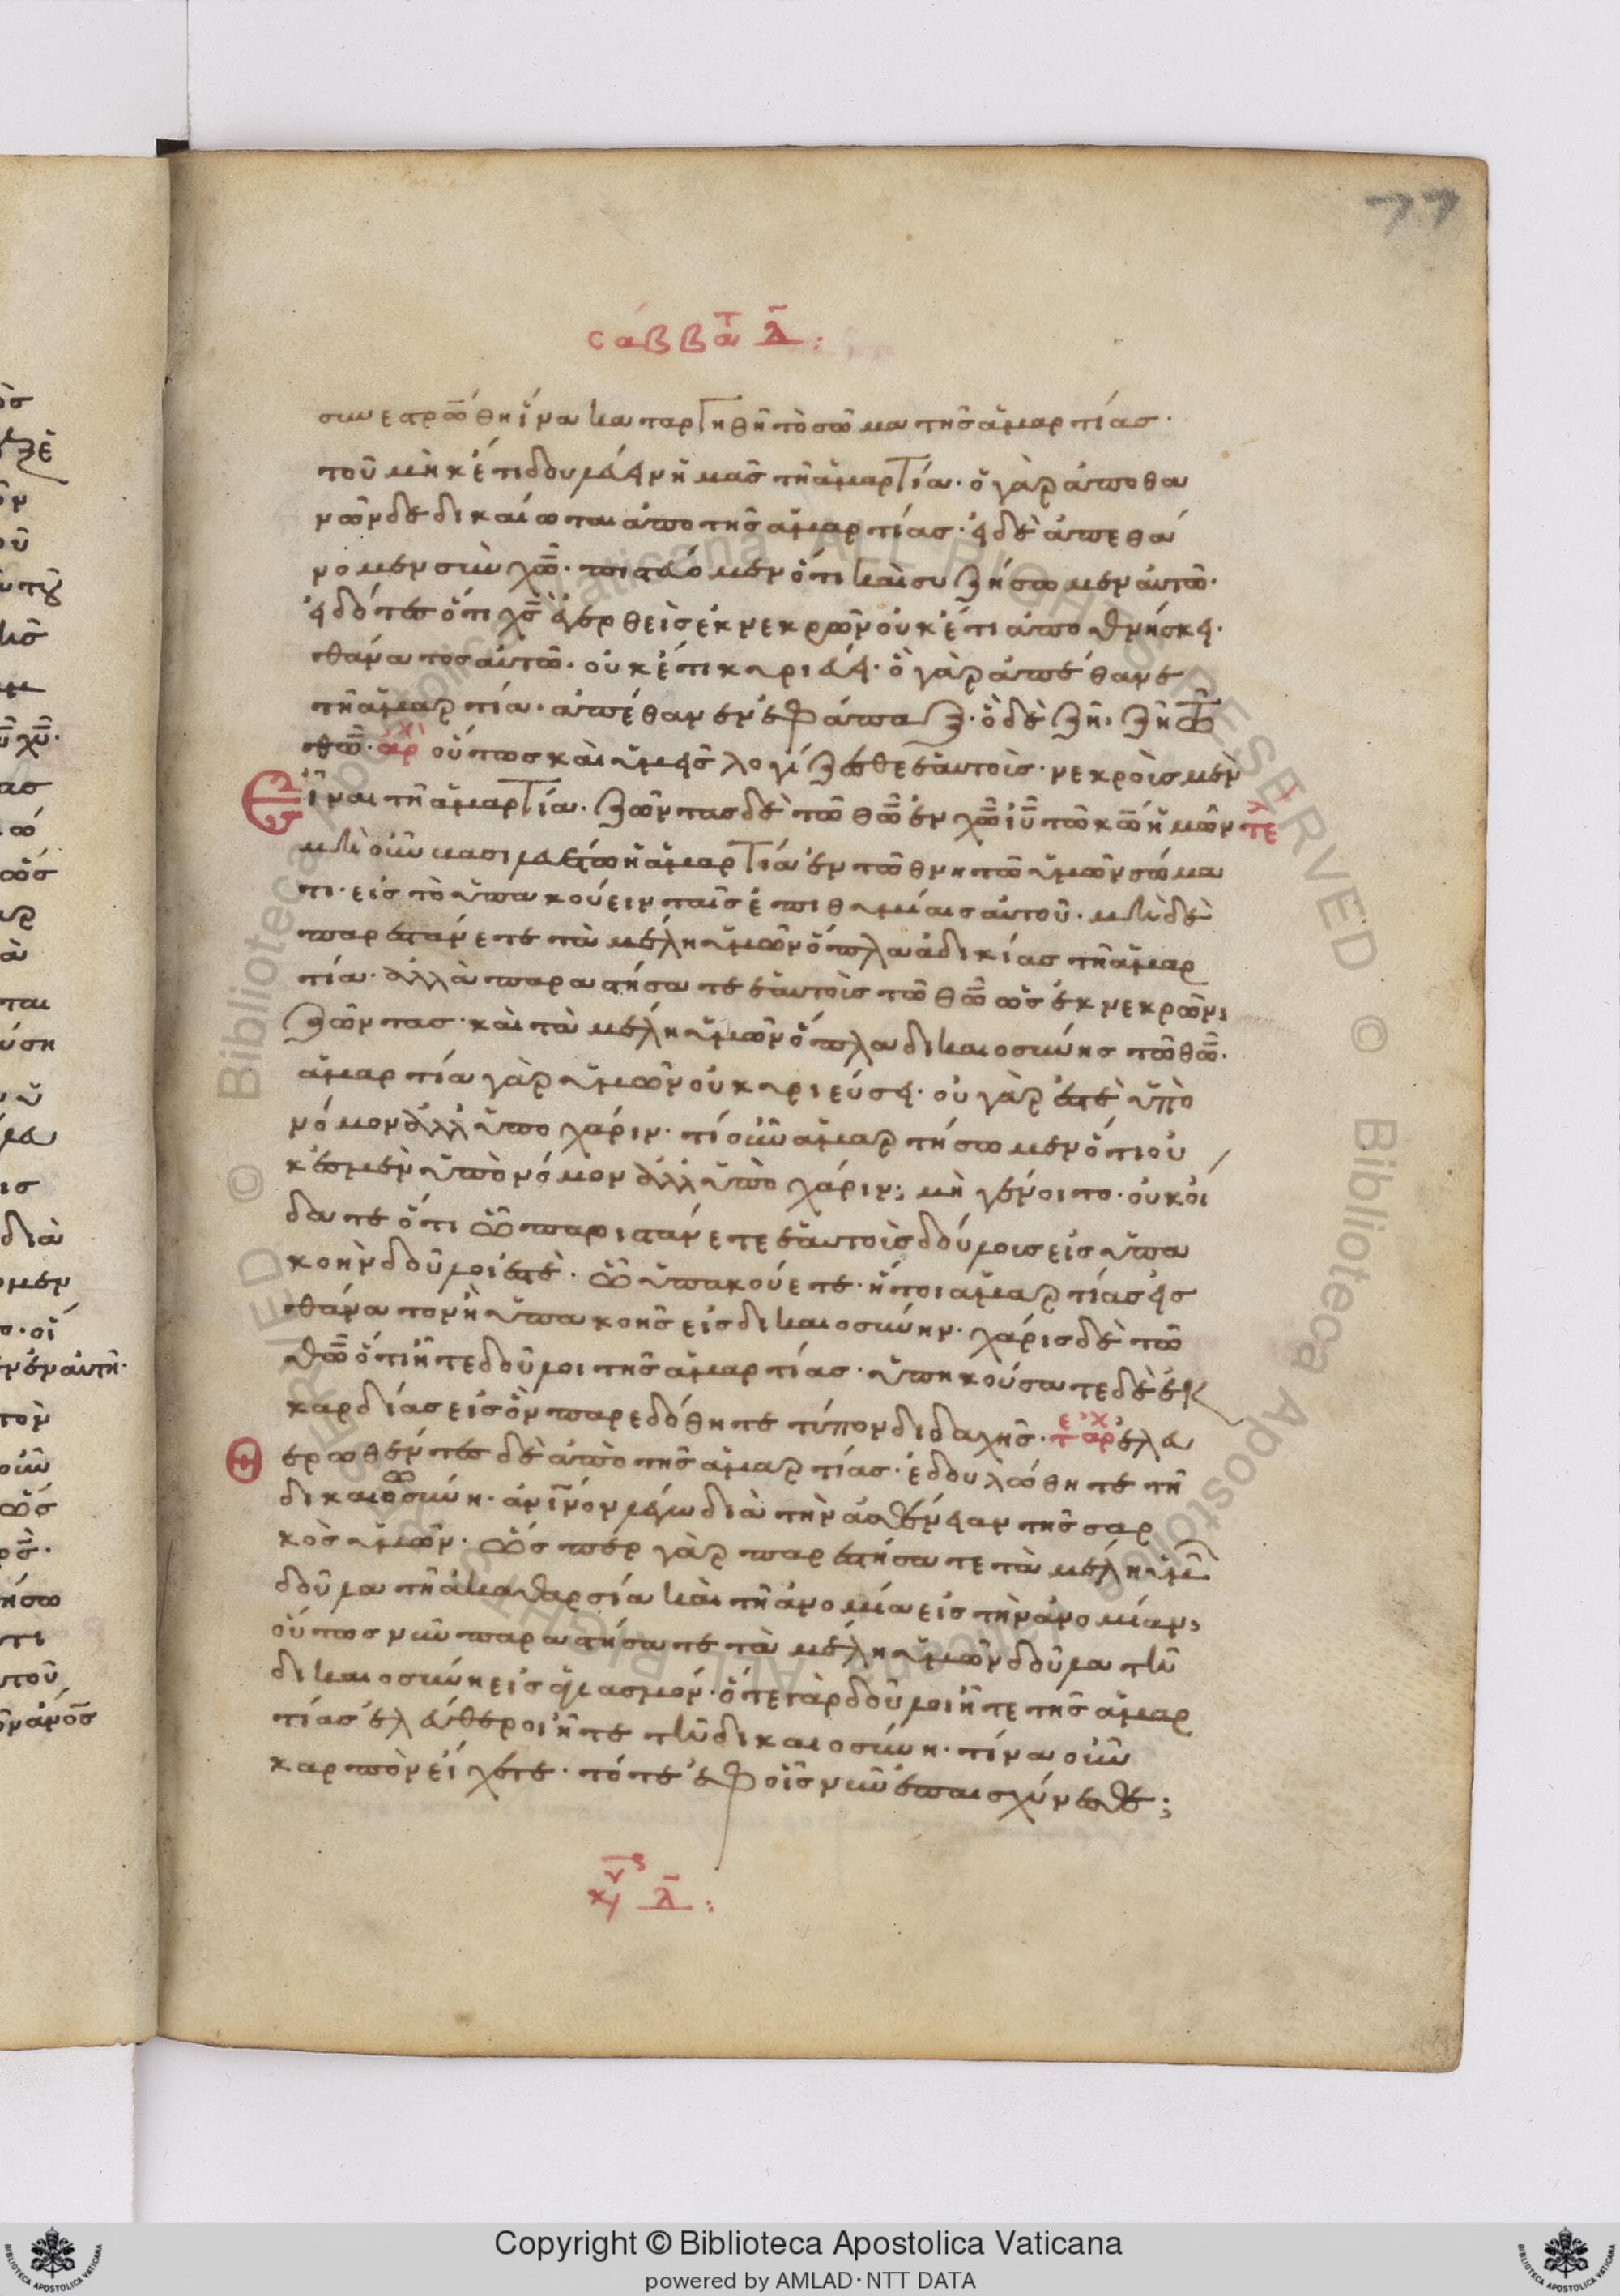 77
σάββα τ λ:
συνεσταυρώθη ἵνα καταργηθῆ τὸ σῶμα τῆς ἁμαρτίας·
τοῦ μὴκέτι δουλεύειν ἡμᾶς τῆ ἁμαρτία· ὁ γὰρ ἀποθα
νὼν δεδικαίωται ἀπο τῆς ἁμαρτίας· εἰ δὲ ἀπεθά
νομεν σὺν χω· πιστεύομεν ὅτι καὶ συζήσωμεν αὐτῶ·
εἰδότες ὅτι χς ἐγερθεὶς ἐκ νεκρῶν οὐκέτι ἀποθνήσκει·
θάνατος αὐτῶ· οὐκέτι κυριεύει· ὃ γὰρ ἀπέθανε
τῆ ἁμαρτία· ἀπέθανεν ἐφάπαξ· ὃ δὲ ζῆ· ζῆ τῶ
θω· ἀρχ οὕτως καὶ ὑμεῖς λογίζεσθε ἑαυτοὺς· νεκροὺς μὲν
εἶναι τῆ ἁμαρτία· ζῶντας δὲ τῶ θω ἐν χω ιυ τῶ κω ἡμῶν τε
μὴ οὖν βασιλευέτω ἡ ἁμαρτία ἐν τῶ θνητῶ ὑμῶν σώμα
τι· εἰς τὸ ὑπακούειν ταῖς ἐπιθυμίαις αὐτοῦ· μὴ δὲ
παριστάνετε τὰ μέλη ὑμῶν ὅπλα ἀδικίας τῆ ἁμαρ
τία· ἀλλὰ παραστήσατε ἑαυτοὺς τῶ θω ὡς ἐκ νεκρῶν,
ζῶντας· καὶ τὰ μέλη ὑμῶν ὅπλα δικαιοσύνης τῶ θω·
ἁμαρτία γὰρ ὑμῶν οὐ κυριεύσει· οὐ γάρ ἐστὲ ὑπὸ
νόμον ἀλλ ὑπο χάριν· τί οὖν ἁμαρτήσωμεν ὅτι οὐ
κ ἐσμὲν ὑπὸ νόμον ἀλλ ὑπὸ χάριν; μὴ γένοιτο· οὐκ οἴ
δατε ὅτι ὧ παριστάνετε ἑαυτοὺς δούλους εἰς ὑπα
κοὴν δοῦλοί ἐστὲ· ὧ ὑπακούετε· ἤτοι ἁμαρτίας εἰς
θάνατον ἢ ὑπακοῆς εἰς δικαιοσύνην· χάρις δὲ τῶ
θω ὅτι ἦτε δοῦλοι τῆς ἁμαρτίας· ὑπηκούσατε δὲ ἐκ
καρδίας εἰς ὃν παρεδόθητε τύπον διδαχῆς· ἐλευ
θερωθέντες δὲ ἀπὸ τῆς ἁμαρτίας· ἐδουλώθητε τῆ
δικαιοσύνη· ἀνινον λέγω διὰ τὴν ἀσθένειαν τῆς σαρ
κὸς ὑμῶν· ὥσπερ γὰρ παρεστήσατε τὰ μέλη ὑμ
δοῦλα τῆ ἀκαθαρσία καὶ τῆ ἀνομία εἰς τὴν ἀνομίαν,
οὕτως νῦν παραστήσατε τὰ μέλη ὑμῶν δοῦλα τῆ
δικαιοσύνη εἰς ἁγιασμόν· ὅτε γὰρ δοῦλοι ἦτε τῆς ἁμαρ
τίας ἐλεύθεροι ἦτε τῆ δικαιοσύνη· τίνα οὖν
καρπὸν εἴχετε· τότε ἐφ οἷς νῦν ἐπαισχύνεσθε;
λ:
Copyright © Biblioteca Apostolica Vaticana
powered by AMLAD·NTT DATA